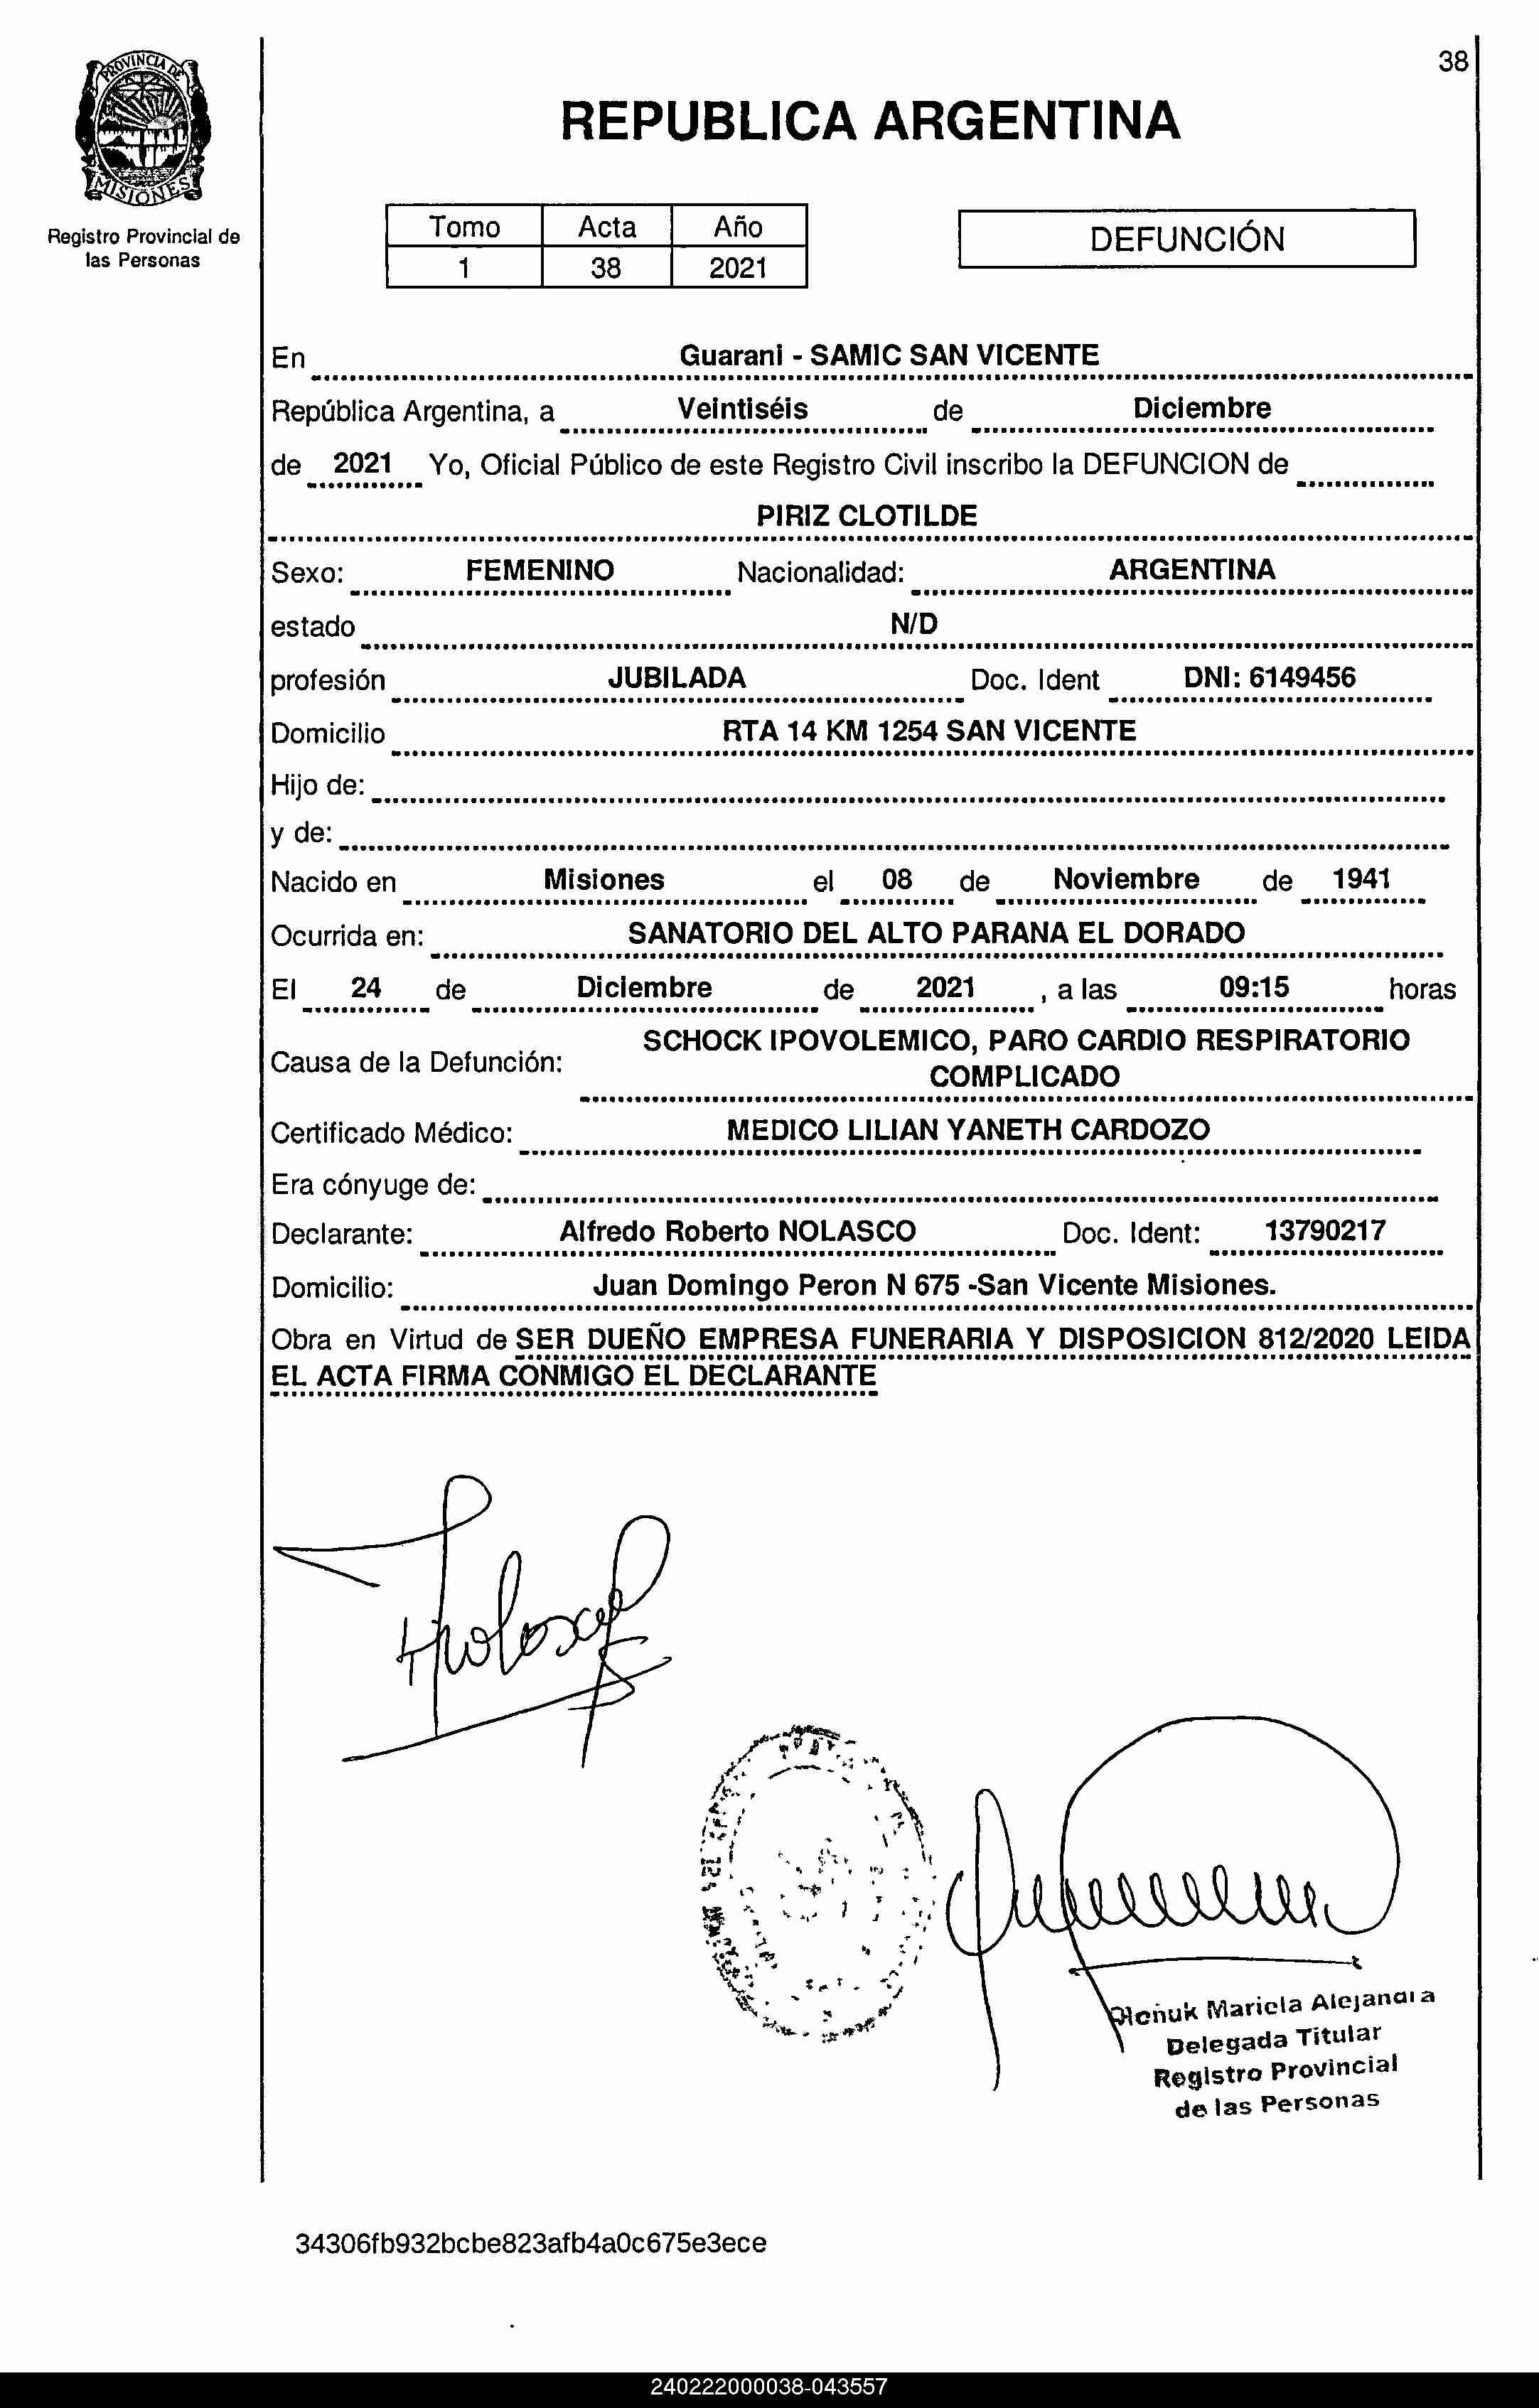 38
PROVINCIA DE
MISIONES
Registro Provincial de
las Personas
REPUBLICA ARGENTINA
Tomo Acta Año
1 38 2021
DEFUNCIÓN
En Guarani - SAMIC SAN VICENTE
República Argentina, a Veintiséis de Diciembre
de 2021 Yo, Oficial Público de este Registro Civil inscribo la DEFUNCION de
PIRIZ CLOTILDE
Sexo: FEMENINO Nacionalidad: ARGENTINA
estado N/D
profesión JUBILADA Doc. Ident DNI: 6149456
Domicilio RTA 14 KM 1254 SAN VICENTE
Hijo de:
y de:
Nacido en Misiones el 08 de Noviembre de 1941
Ocurrida en: SANATORIO DEL ALTO PARANA EL DORADO
El 24 de Diciembre de 2021 , a las 09:15 horas
Causa de la Defunción: SCHOCK IPOVOLEMICO, PARO CARDIO RESPIRATORIO
COMPLICADO
Certificado Médico: MEDICO LILIAN YANETH CARDOZO
Era cónyuge de:
Declarante: Alfredo Roberto NOLASCO Doc. Ident: 13790217
Domicilio: Juan Domingo Peron N 675 -San Vicente Misiones.
Obra en Virtud de SER DUEÑO EMPRESA FUNERARIA Y DISPOSICION 812/2020 LEIDA
EL ACTA FIRMA CONMIGO EL DECLARANTE
Mariela Alejandra
Delegada Titular
Registro Provincial
de las Personas
34306fb932bcbe823afb4a0c675e3ece
240222000038-043557